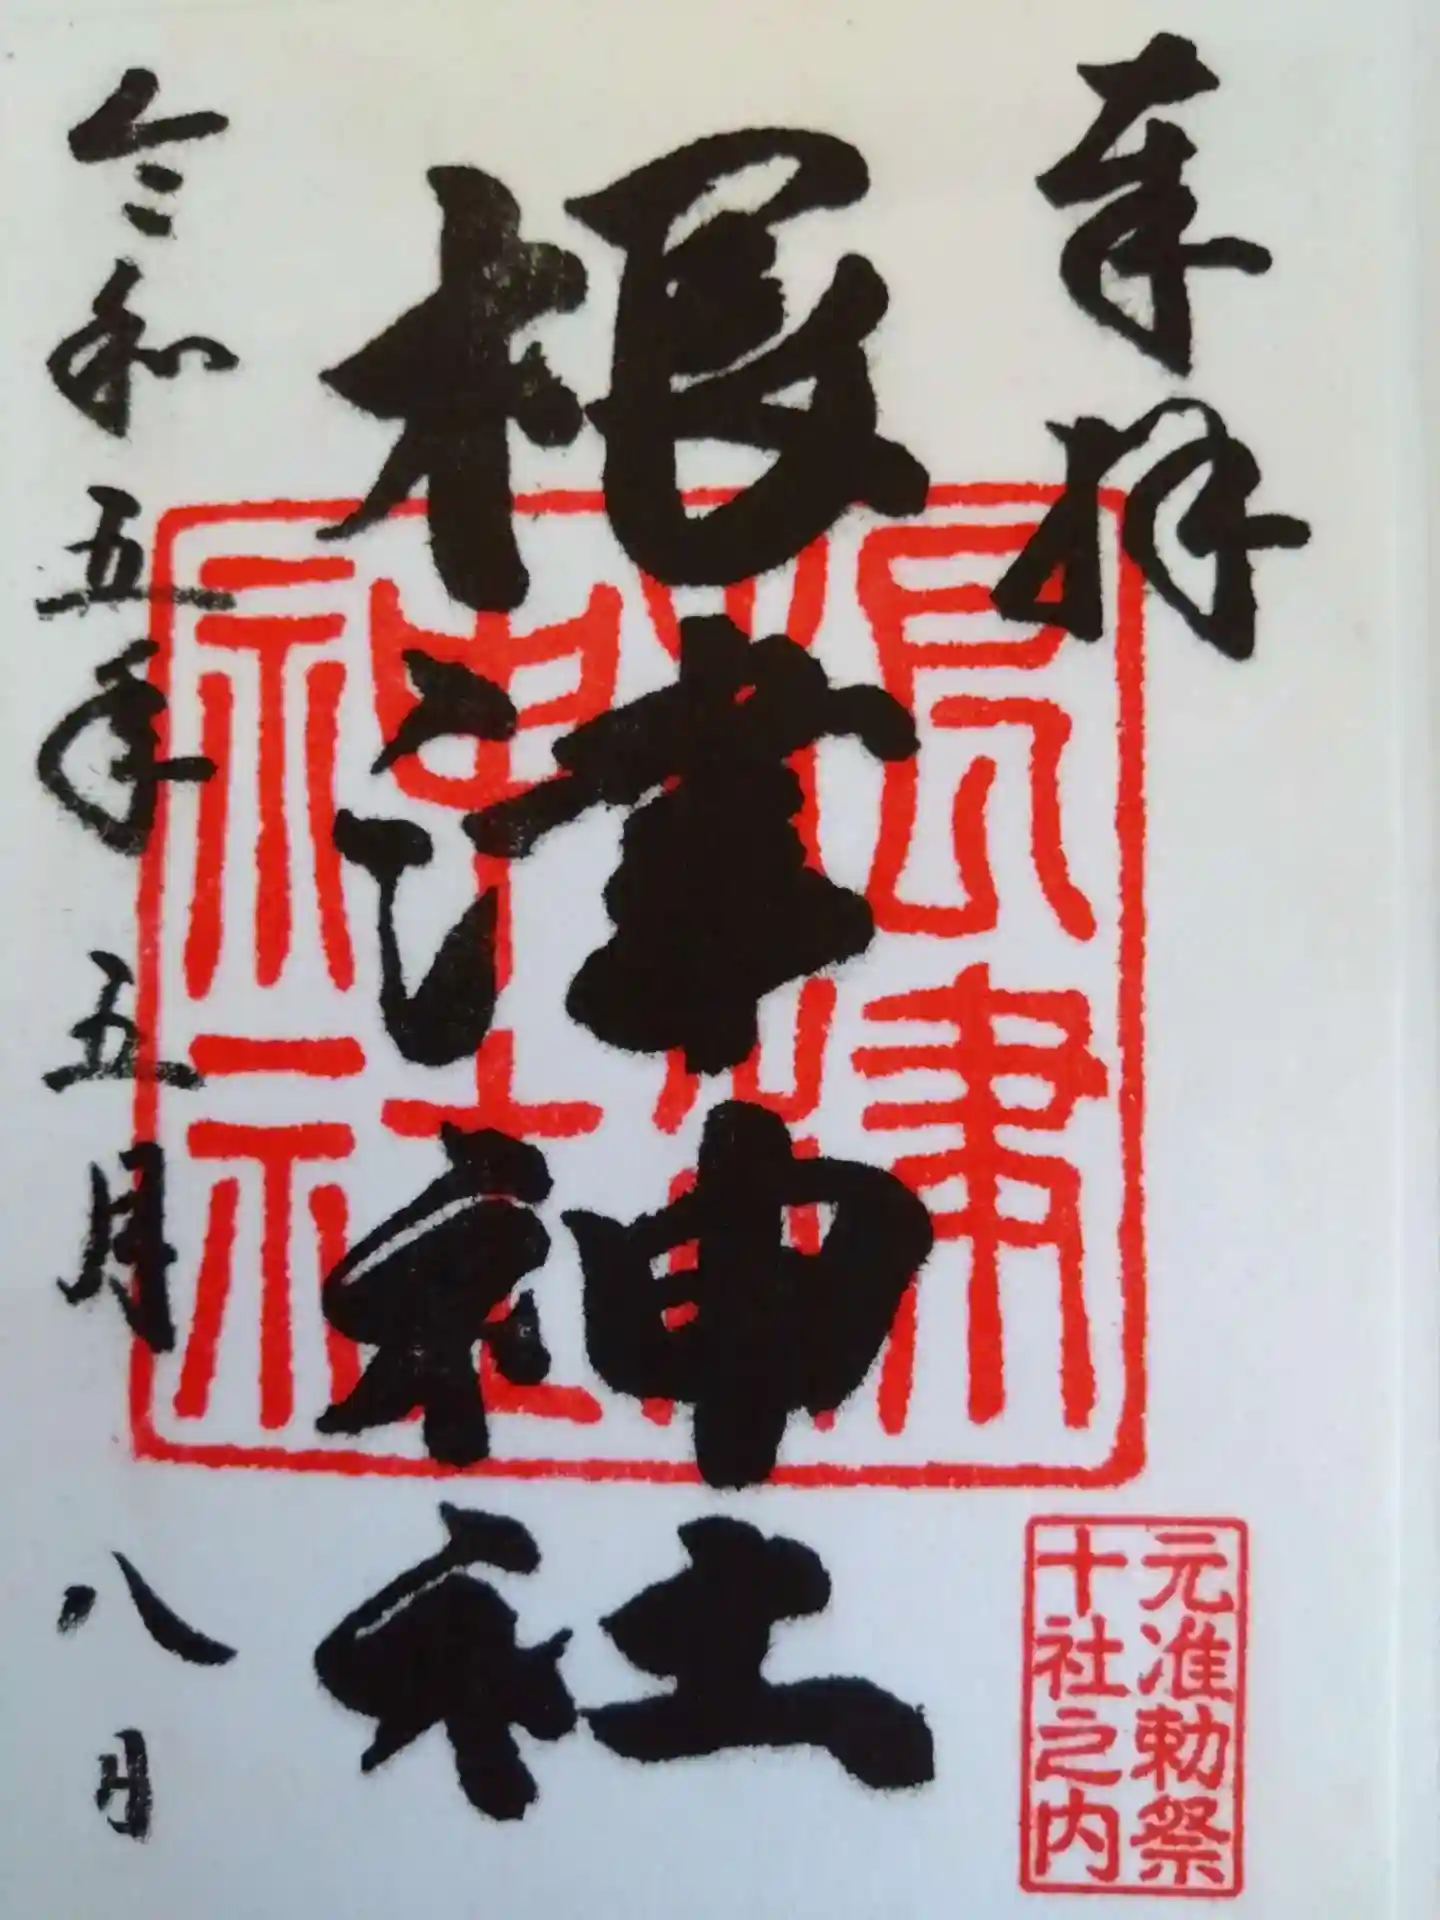 奉拝
根津神社
令和五年五月八月
根津神社
元准勅祭
十社之内